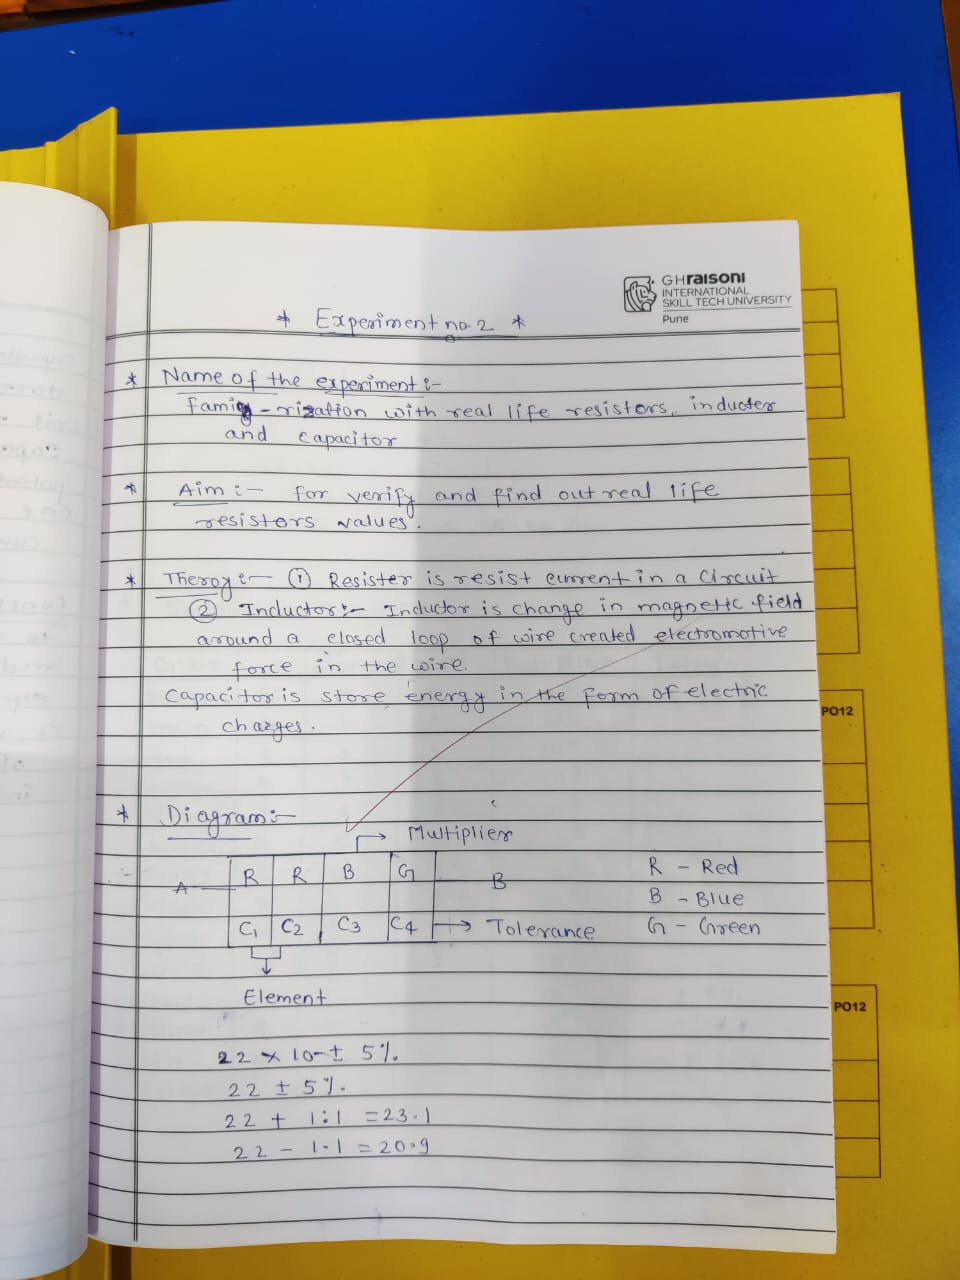 GHraisoni
INTERNATIONAL
SKILL TECH UNIVERSITY
Pune
* Experiment no. 2 *
* Name of the experiment :-
rization with real life resistors, inducter
and capacitor
* Aim :- for verify and find out real life
resistors values.
* Theroy :- ① Resister is resist current in a circuit
② Inductor :- Inductor is change in magnetic field
around a closed loop of wire created electromotive
force in the wire.
Capacitor is store energy in the form of electric
charges.
* Diagram :-
Multiplier
A R R B G B R - Red
B - Blue
C1 C2 C3 C4 → Tolerance G - Green
Element
22 × 10 - ± 5%.
22 ± 5%.
22 + 1:1 = 23.1
22 - 1.1 = 20.9
PO12
PO12